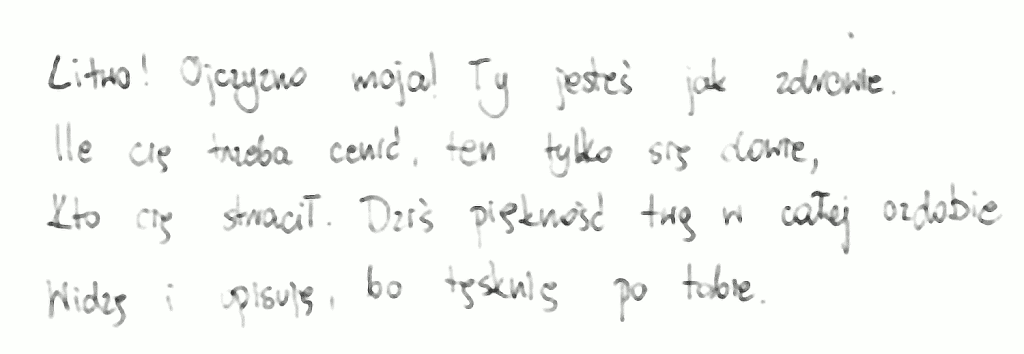 Litwo! Ojczyzno moja! Ty jesteś jak zdrowie.
Ile cię trzeba cenić, ten tylko się dowie,
Kto cię stracił. Dziś piękność twą w całej ozdobie
Widzę i opisuję, bo tęsknię po tobie.